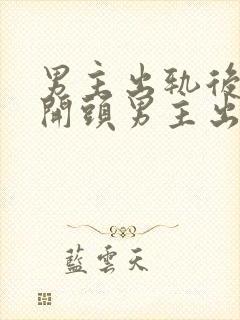 男主出軌後
開頭男主出
藍雲天